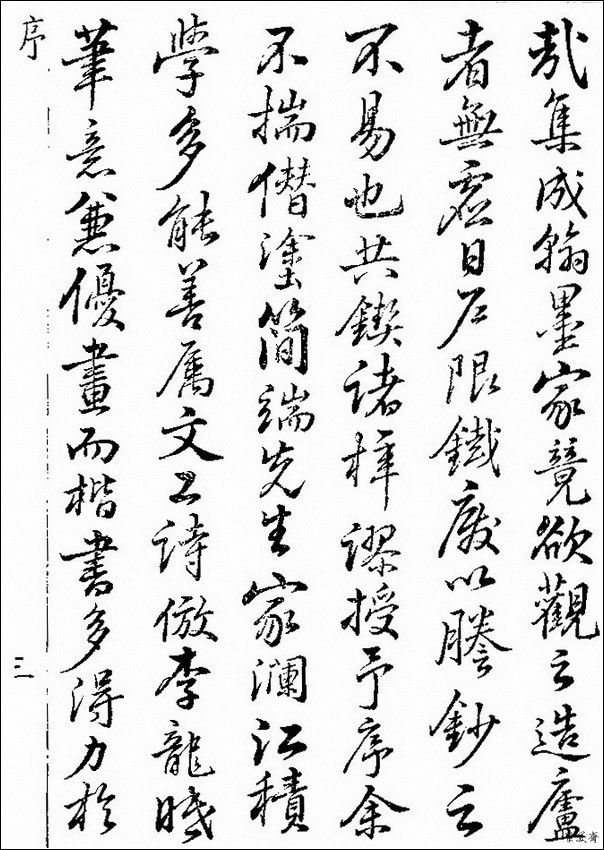 哉集成翰墨家竟欲觀之造廬
者無虛日戶限鐵廢以謄鈔之
不易也共鍥諸梓謬授予序余
不揣僭塗簡端先生家瀾江積
學多能善属文工詩倣李龍眠
筆意兼優畫而楷書多得力於
序
三